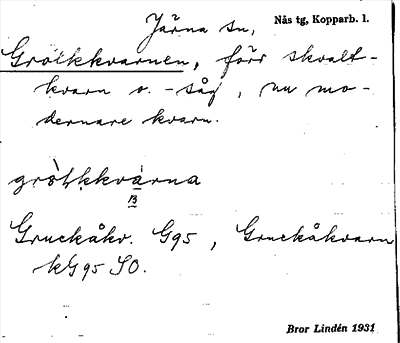 Järna sn, Nås tg, Kopparb. l.
Grötkkvarnen, förr skvalt-
kvarn o. -såg, nu mo-
dernare kvarn.
grötkkvarna
B
Gruckåkv. G95, Gruckåkvarn
kG95 SO.
Bror Lindén 1931